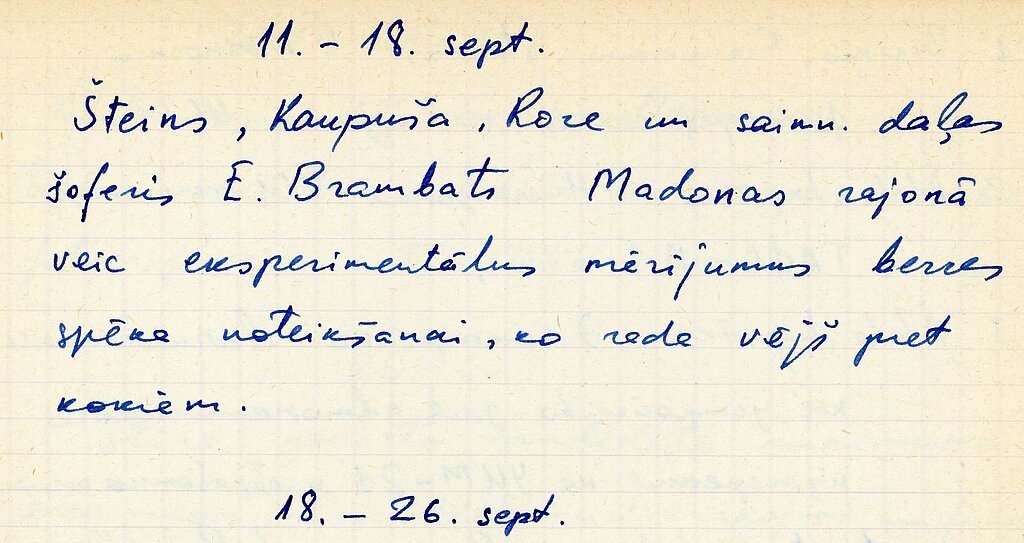 11. - 18. sept.
Šteins, Kaupuša, Roze un saimn. daļas
šoferis E. Brambats Madonas rajonā
veic eksperimentālus mērījumus berzes
spēka noteikšanai, ko rada vējš pret
kokiem.
18. - 26. sept.